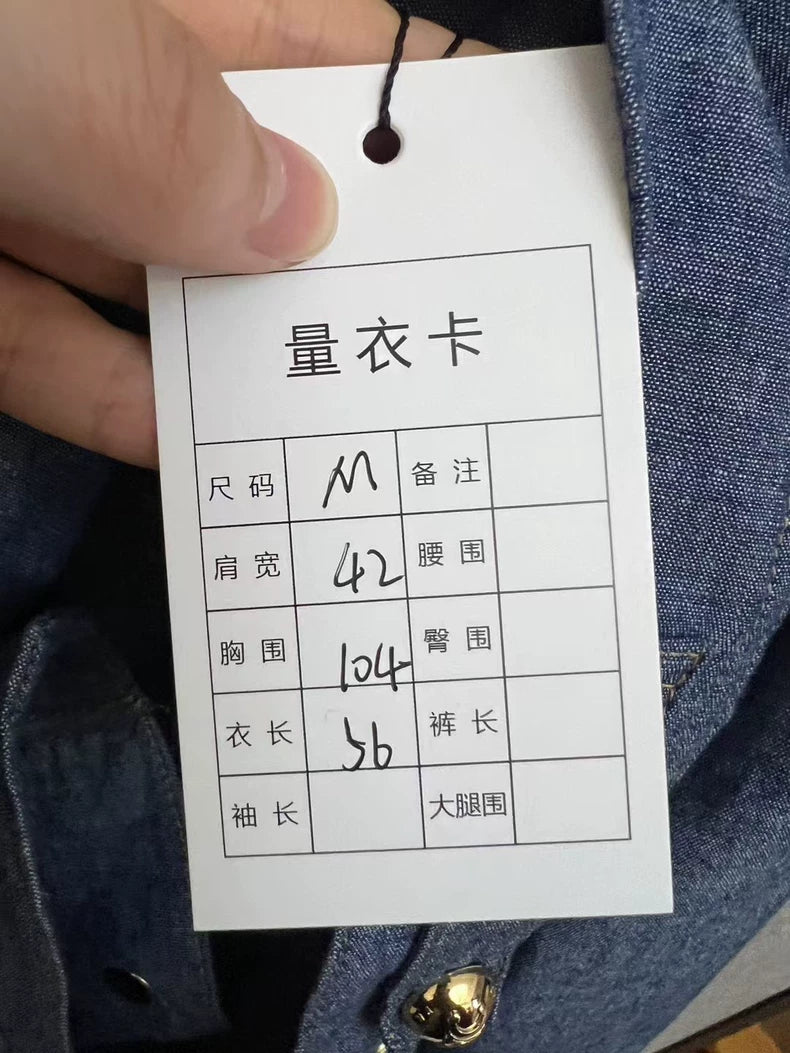 量衣卡
尺码 M 备注
肩宽 42 腰围
胸围 104 臀围
衣长 56 裤长
袖长 大腿围